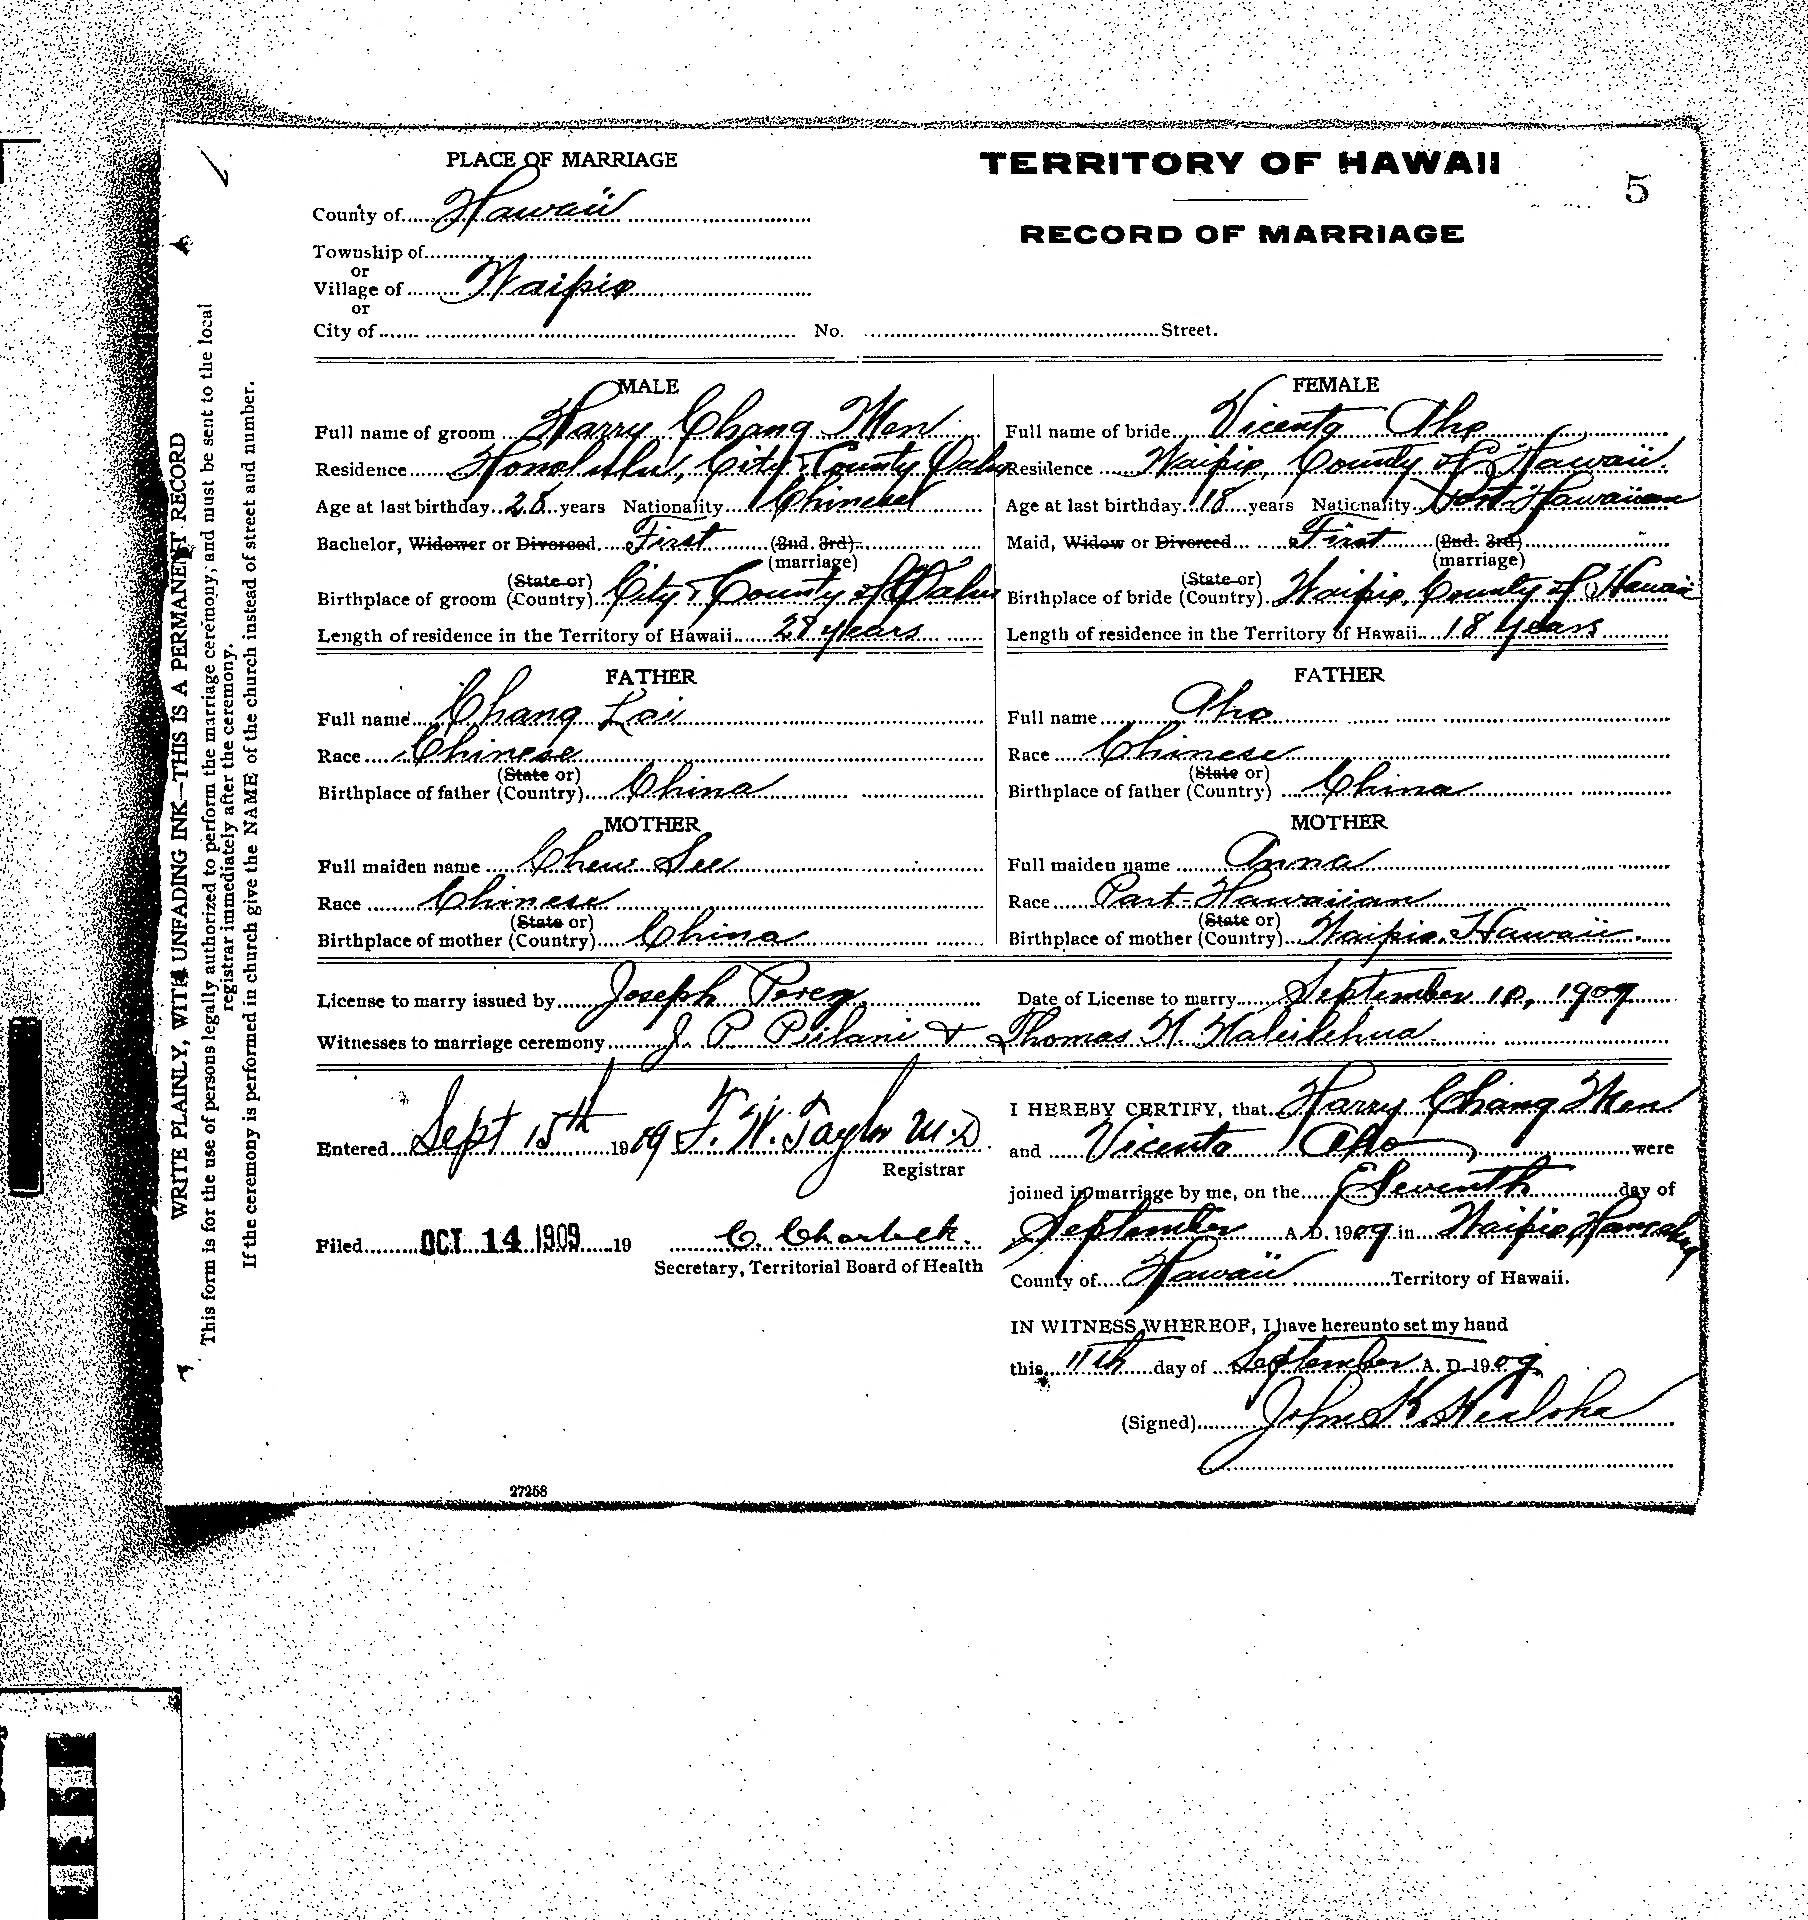 PLACE OF MARRIAGE
TERRITORY OF HAWAII
5
County of Hawaii
RECORD OF MARRIAGE
Township of
or
Village of Waipio
or
City of No. Street.
MALE
Full name of groom Harry Chang Men
Residence Honolulu, City & County Oahu
Age at last birthday 28 years Nationality Chinese
Bachelor, Widower or Divorced First (2nd. 3rd)
(marriage)
Birthplace of groom (State or) (Country) City & County of Oahu
Length of residence in the Territory of Hawaii 28 years
FATHER
Full name Chang Lai
Race Chinese
Birthplace of father (State or) (Country) China
MOTHER
Full maiden name Chew See
Race Chinese
Birthplace of mother (State or) (Country) China
FEMALE
Full name of bride Vicenta Aho
Residence Waipio, County of Hawaii.
Age at last birthday 18 years Nationality Part Hawaiian
Maid, Widow or Divorced First (2nd. 3rd)
(marriage)
Birthplace of bride (State or) (Country) Waipio, County of Hawaii
Length of residence in the Territory of Hawaii 18 years
FATHER
Full name Aho
Race Chinese
Birthplace of father (State or) (Country) China
MOTHER
Full maiden name Anna
Race Part-Hawaiian
Birthplace of mother (State or) (Country) Waipio, Hawaii.
License to marry issued by Joseph Perez. Date of License to marry September 10, 1909
Witnesses to marriage ceremony J. P. Piilani & Thomas N. Haleilehua.
Entered Sept 15th 1909 F. W. Taylor M.D.
Registrar
Filed OCT 14 1909 19 C. Charlock.
Secretary, Territorial Board of Health
I HEREBY CERTIFY, that Harry Chang Men
and Vicenta Aho were
joined in marriage by me, on the Eleventh day of
September A. D. 1909 in Waipio, Hamakua
County of Hawaii Territory of Hawaii.
IN WITNESS WHEREOF, I have hereunto set my hand
this 11th day of September A. D. 1909
(Signed) John K. Kealoha
27258
WRITE PLAINLY, WITH UNFADING INK—THIS IS A PERMANENT RECORD
This form is for the use of persons legally authorized to perform the marriage ceremony, and must be sent to the local
registrar immediately after the ceremony.
If the ceremony is performed in church give the NAME of the church instead of street and number.